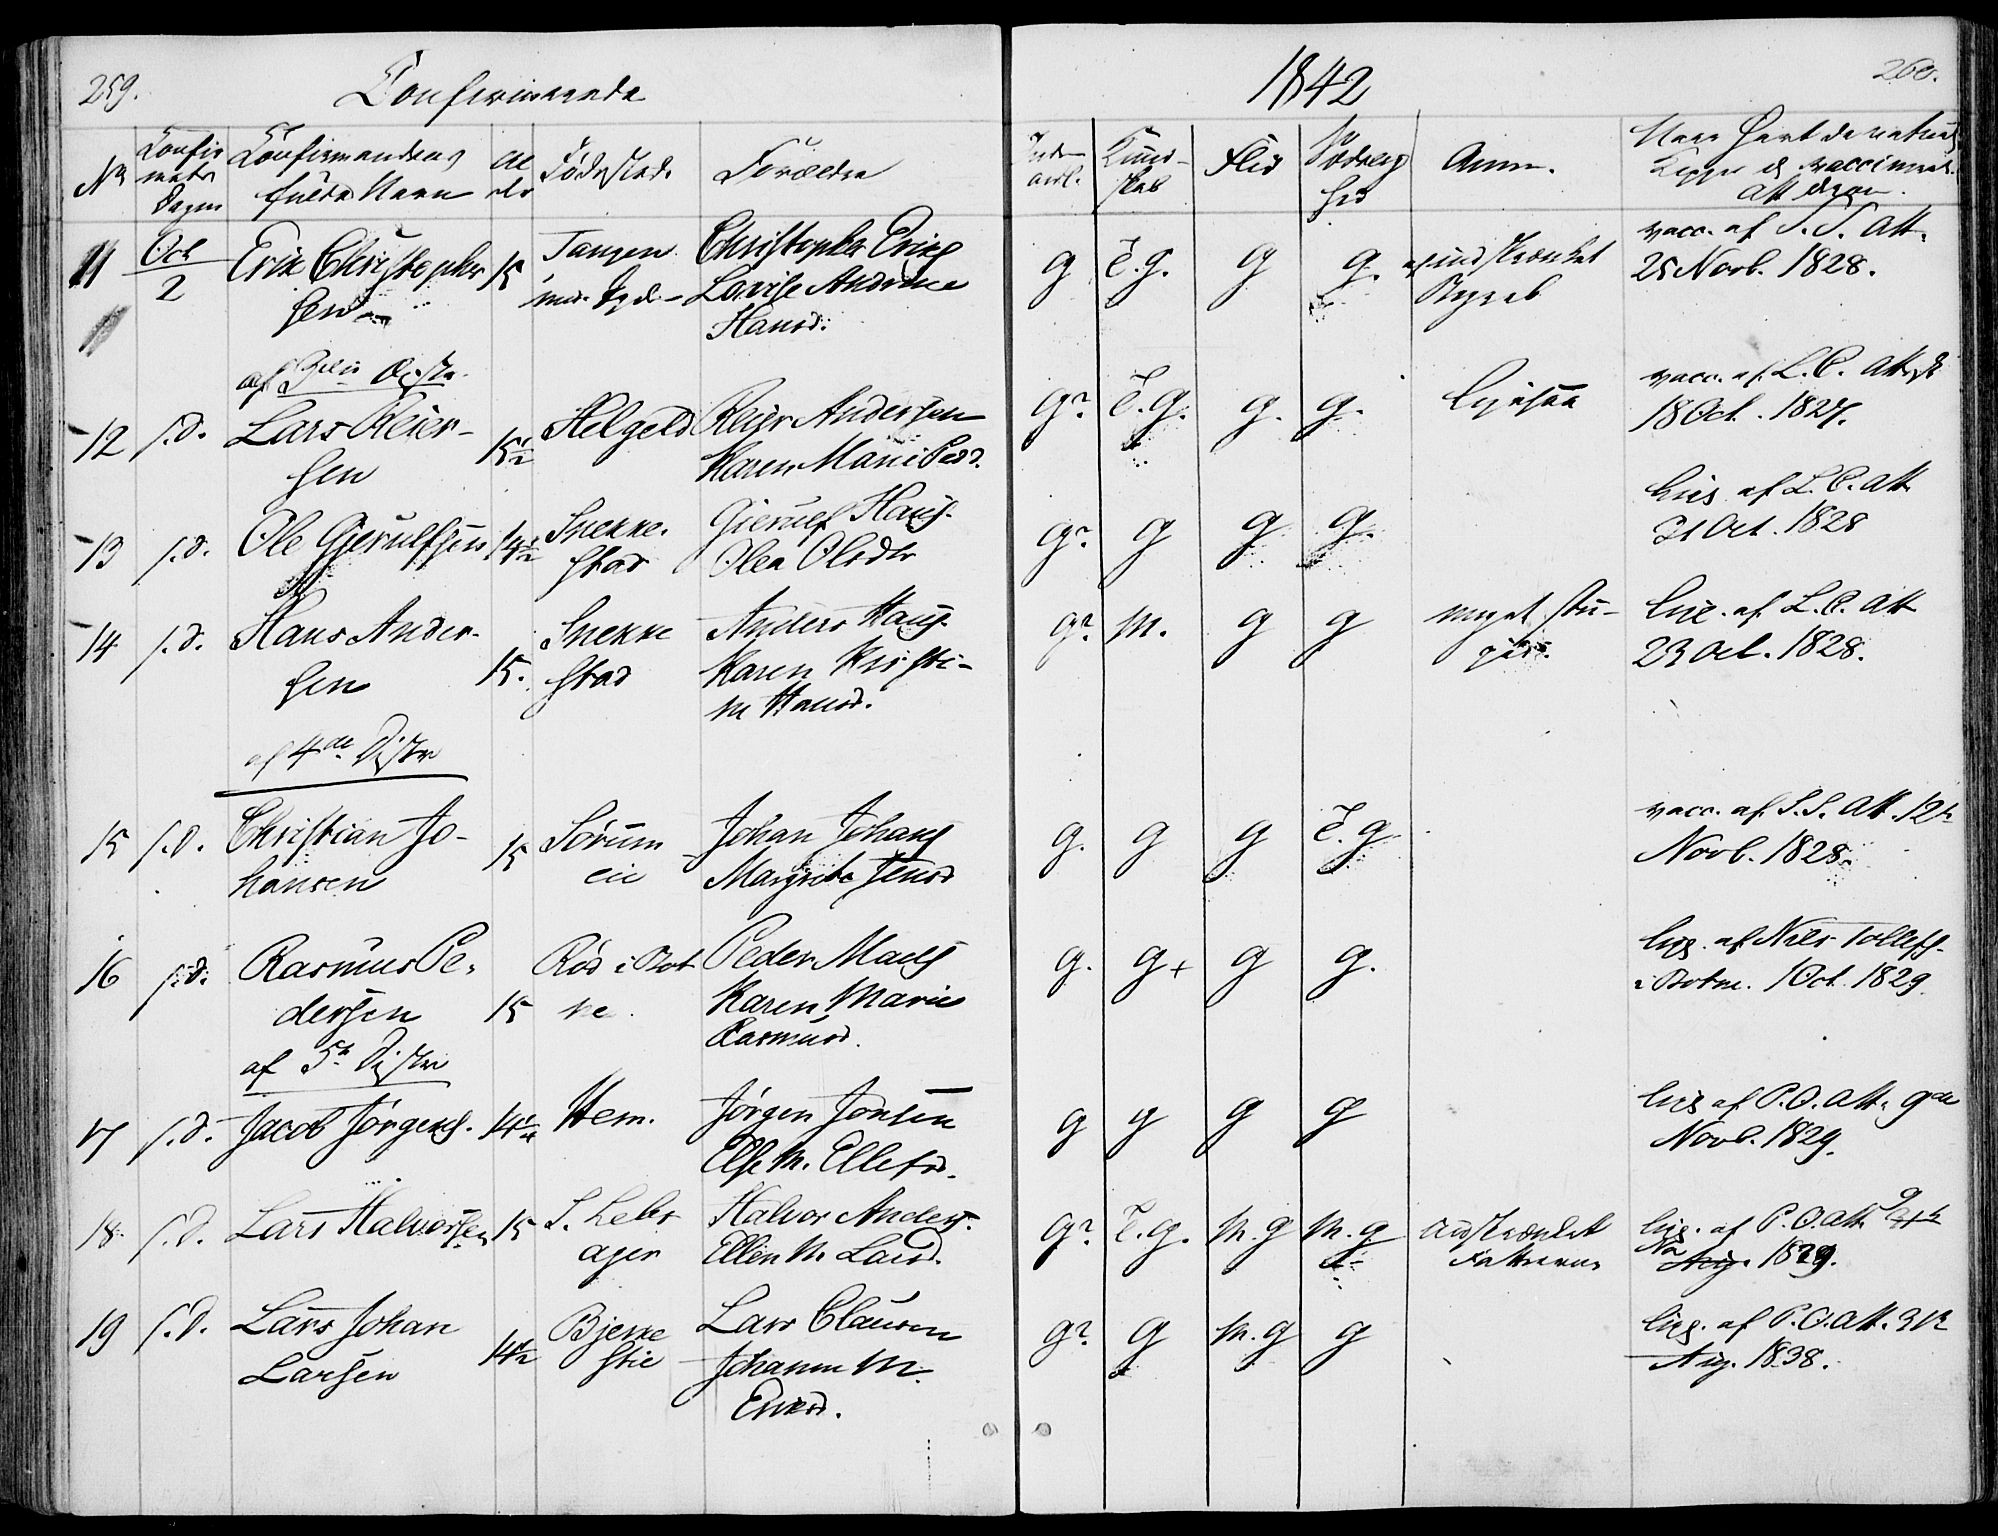 259.
Confirmerede
1842
260.
No
Confir
mats
Dagen
Confirmandens
fulde Navn
Al
der
Fødested.
Forældre
Kund-
skab
Flid
Sædelig
hed
Anm.
Naar havt de naturl.
Kopper el vaccineret.
11
Oct
2
Erik Christopher
sen
15
Tangen
Christopher Eriks
Lovise Andrine
Hansd.
g
T.g.
g
g.
vacc. af S.S. Att.
25 Novb. 1828.
12
s.d.
Lars Reier-
sen
15½
Helgeld
Reier Andersen
Karen Marie Pedd.
g?
T.g.
g.
g.
vacc. af L.C. Att.
18 Oct. 1827.
13
s.d.
Ole Gjerulfsen
14½
Snekke-
stad
Gierulf Hans.
Olea Olsdtr
g?
g
g
g.
lig. af L.C. Att
31 Oct. 1828
14
s.d.
Hans Ander-
sen
15.
Snekke
stad
Anders Hans.
Karen Kristi-
ne Hansd.
g?
M.
g
g
meget stu-
pid.
lig. af L.C. Att
23 Oct. 1828.
af 4de Distr
15
s.d.
Christian Jo-
hansen
15
Sørum
eie
Johan Johans
Margrete Jensd
g.
g
g
T.g
vacc. af S.S. Att. 12te
Novb. 1828.
16
s.d.
Rasmus Pe-
dersen
15
Rød i Bot
ne.
Peder Mads
Karen Marie
Rasmusd.
g.
g+
g
g.
lig. af Niels Tollefs.
i Botne. 1 Oct. 1829.
af 5te Distr
17
s.d.
Jacob Jørgens.
14
Hem.
Jørgen Jonsen
Else M. Ellefsd.
g
g
g
g
lig af P.O. Att. 9de
Novb. 1829.
18.
s.d.
Lars Halvorsen
15
Halvor Anders.
Ellen M. Larsd.
g?
T.g.
M.g
M.g
indskrænket
Fatteevne
lig. af P.O. Att
1829.
19
s.d.
Lars Johan
Larsen
14½
Bjerke
stie
Lars Clausen
Johanne M.
Eriksd.
g?
g
M.g
g
lig. af P.O. Att. 31te
Aug. 1838.